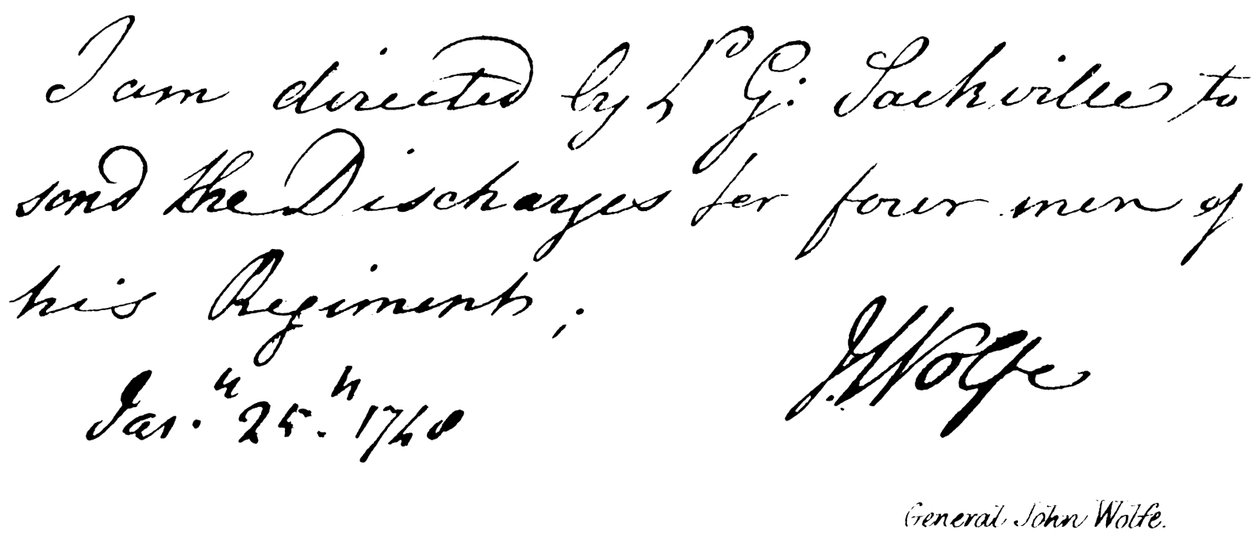 I am directed by Ld G: Sackville to
send the Discharges for four men of
his Regiment;
J: Wolfe
25.h 1748
General John Wolfe.